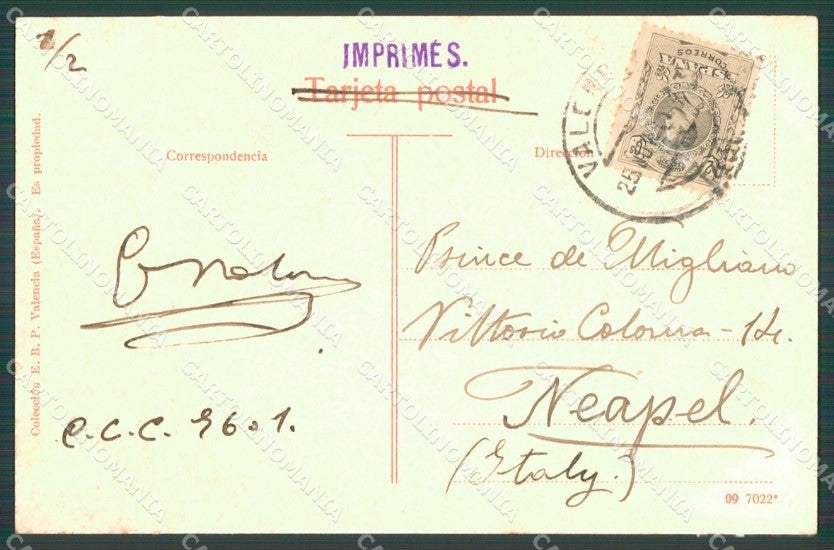 1/2
IMPRIMÉS.
Tarjeta postal
Correspondencia
Dirección
ESPAÑA
CORREOS
VALENC
25
Prince de Migliano
Vittorio Colonna - 14.
Neapel.
(Italy.)
C.C.C. 9601.
Colección E. B. P. Valencia (España). Es propiedad.
09 7022*
CARTOLINOMANIA